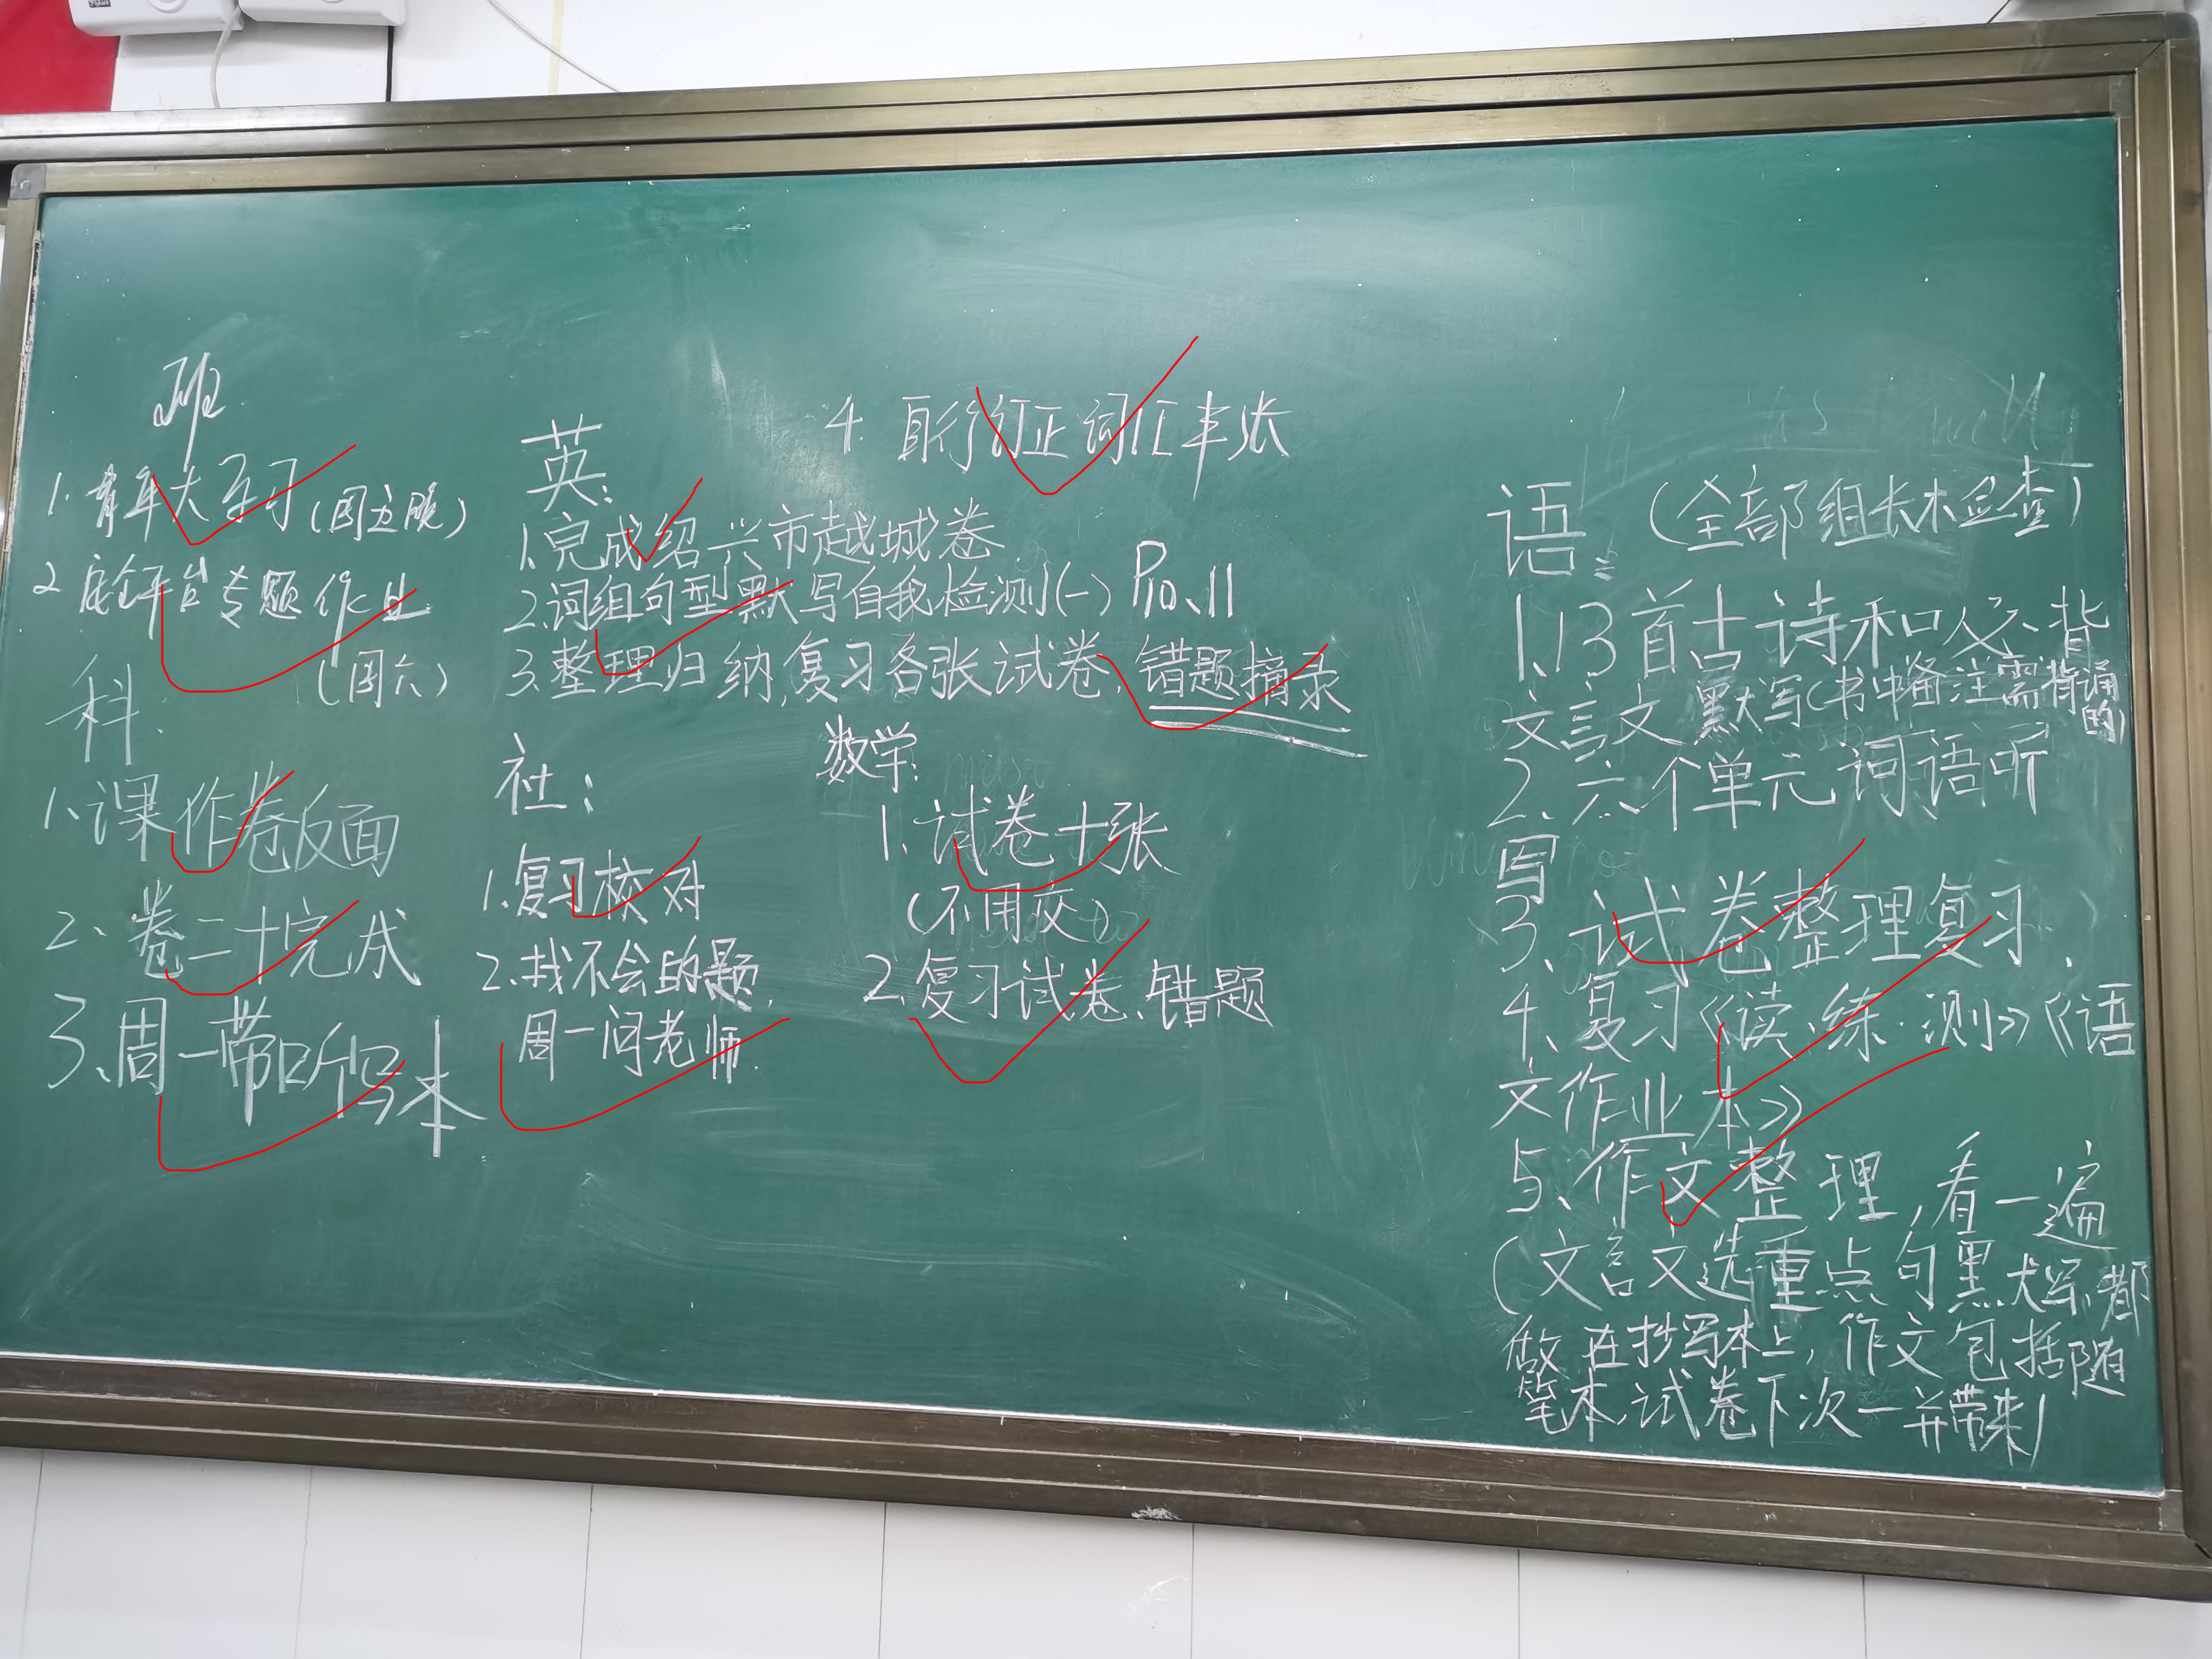 班
1. 青年大学习(周五晚)
2. 安全平台专题作业
(周六)
科:
1、课作卷反面
2、卷二十完成
3、周一带听写本
英:
1.完成绍兴市越城卷.
2.词组句型默写自我检测(一) P10、11
3.整理归纳,复习各张试卷,错题摘录
4. 自行订正词汇半张
社:
1.复习校对
2.找不会的题,
周一问老师.
数学:
1、试卷十张
(不用交)
2、复习试卷、错题
语: (全部组长检查)
1、13首古诗和必背
文言文 默写(书中备注需背诵的)
2、六个单元词语听
写
3、试卷整理复习.
4、复习《读·练·测》《语
文作业本》
5、作文整理,看一遍
(文言文选重点句默写,都
做在抄写本上,作文包括随
笔本,试卷下次一并带来)